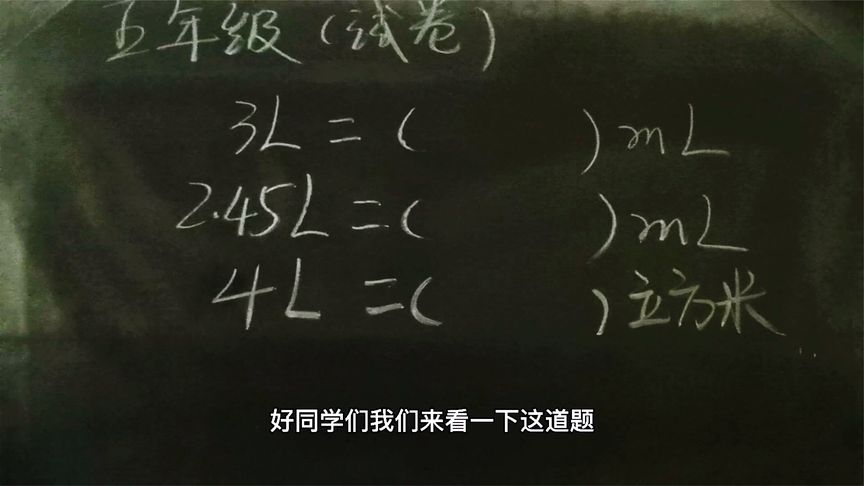 五年级(试卷)
3L=(    )mL
2.45L=(    )mL
4L=(    )立方米
好同学们我们来看一下这道题